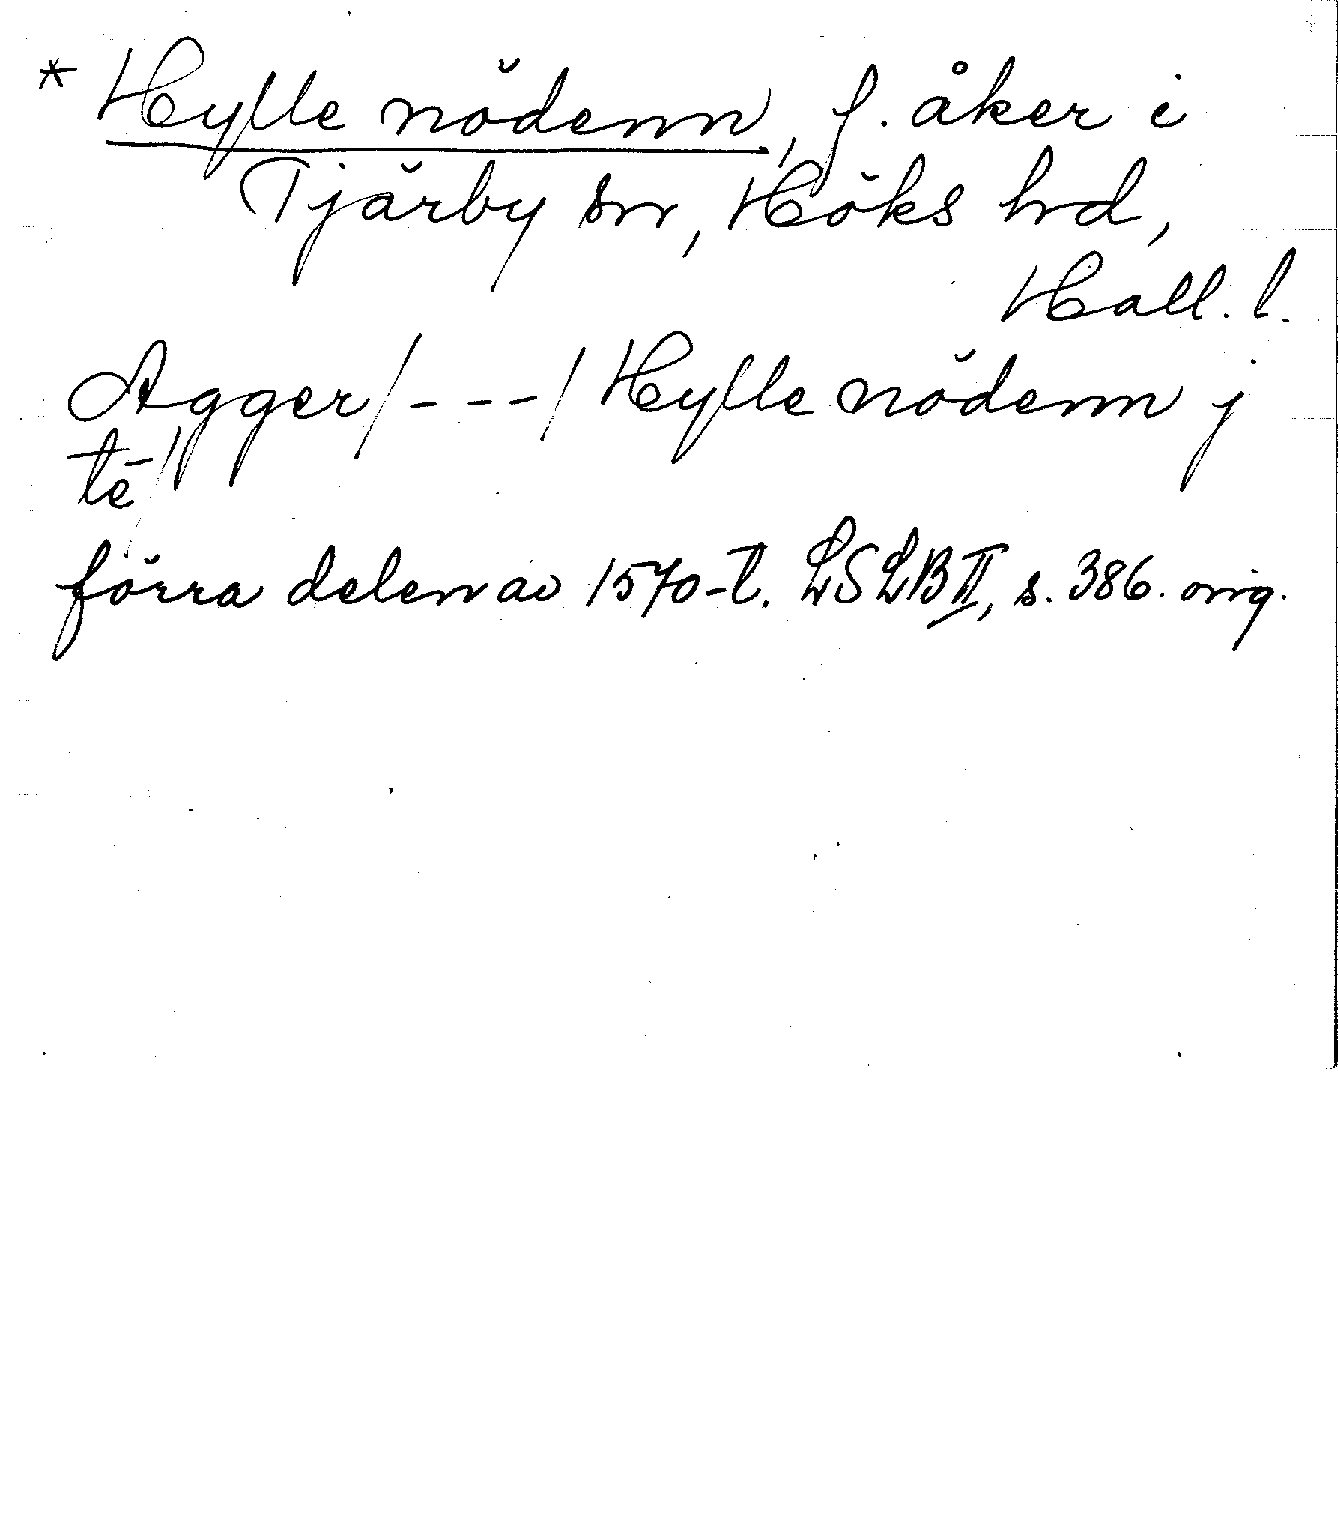 * Hylle nödenn, f. åker i
Tjärby sn, Höks hd,
Hall. l.
Agger/---/Hylle nödenn j
tē
förra delen av 1570-t. LSLB II, s. 386. orig.